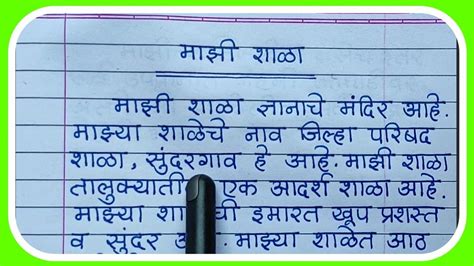 माझी शाळा
माझी शाळा ज्ञानाचे मंदिर आहे.
माझ्या शाळेचे नाव जिल्हा परिषद
शाळा, सुंदरगाव हे आहे. माझी शाळा
तालुक्याती एक आदर्श शाळा आहे.
माझ्या शा ची इमारत खूप प्रशस्त
व सुंदर . माझ्या शाळेत आठ